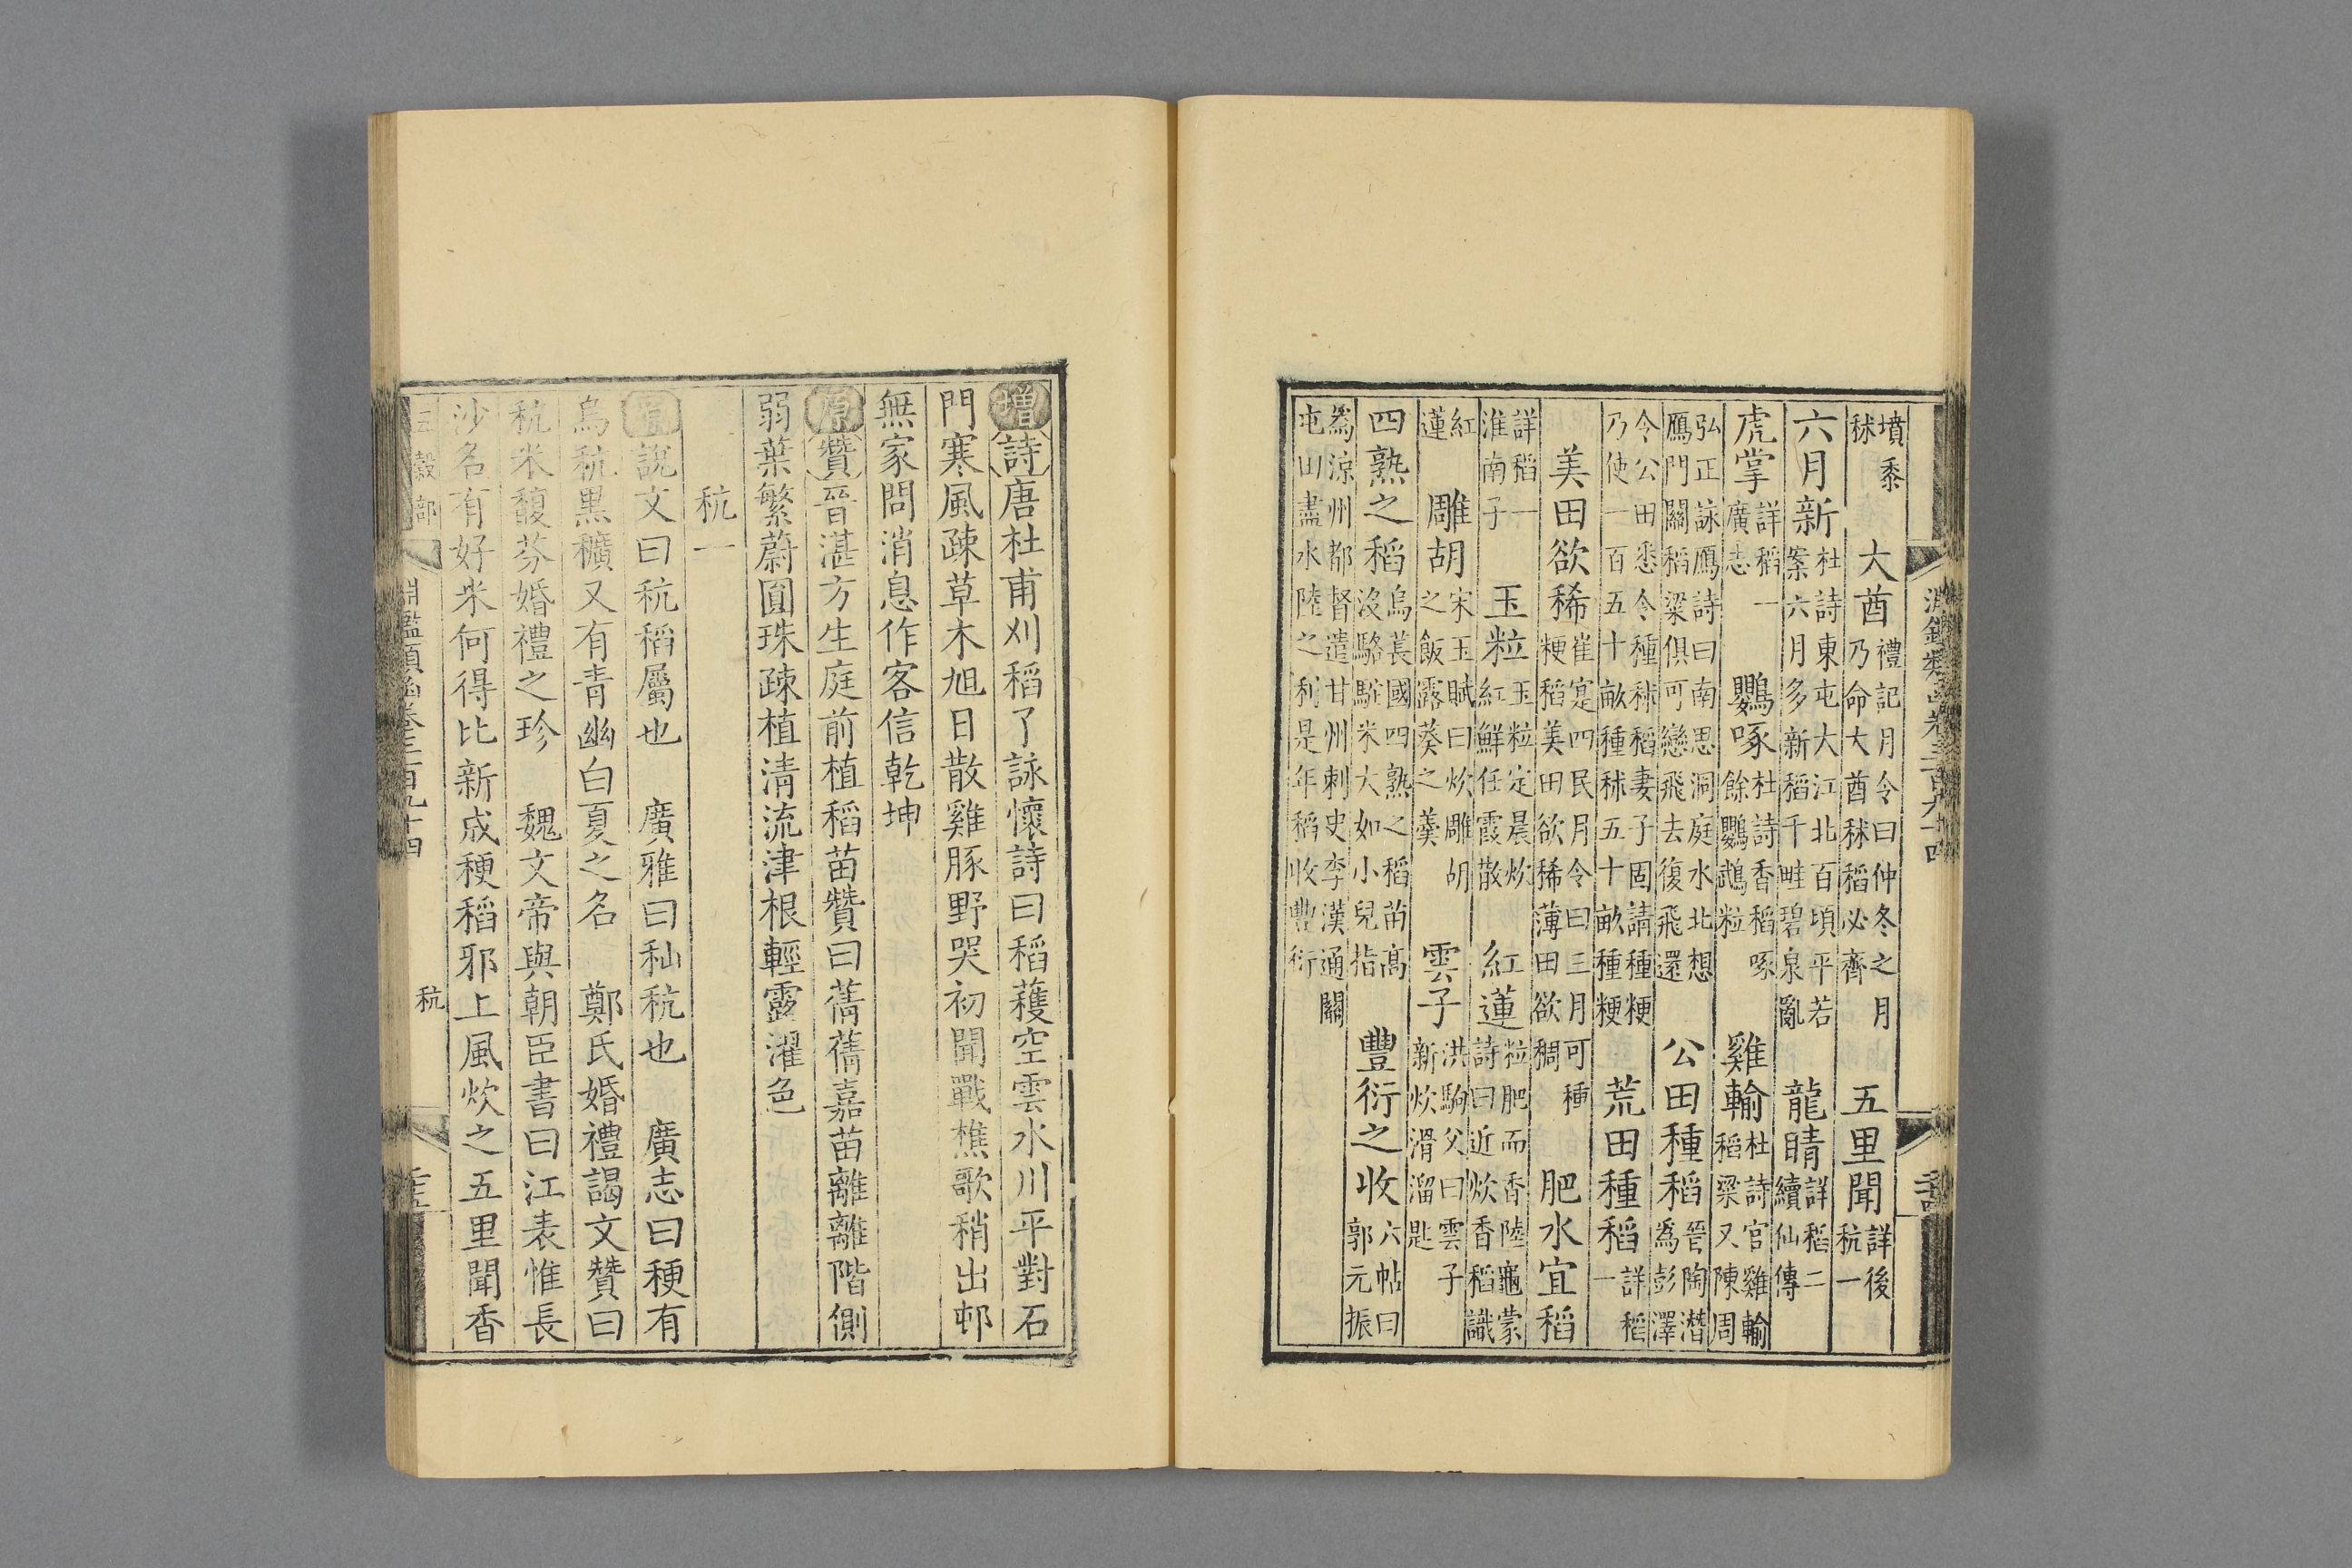 淵鑑類函卷三百九十四
墳黍秫　大酋禮記月令曰仲冬之月乃命大酋秫稻必齊　五里聞詳後秔一
六月新杜詩東屯大江北百頃平若案六月多新稻千畦碧泉亂　龍睛詳稻二續仙傳
虎掌詳稻一廣志　鸚啄杜詩香稻啄餘鸚鵡粒　雞輸杜詩官雞輸稻粱又陳周
弘正詠鴈詩曰南思洞庭水北想鴈門關稻粱俱可戀飛去復飛還　公田種稻晉陶潛爲彭澤
令公田悉令種秫稻妻子固請種粳乃使一百五十畝種秫五十畝種粳　荒田種稻詳稻一
美田欲稀崔寔四民月令曰三月可種粳稻美田欲稀薄田欲稠　肥水宜稻
詳稻一淮南子　玉粒玉粒定晨炊紅鮮任霞散　紅蓮粒肥而香陸龜蒙詩曰近炊香稻識
紅蓮　雕胡宋玉賦曰炊雕胡之飯露葵之羹　雲子洪駒父曰雲子新炊滑溜匙
四熟之稻烏萇國四熟之稻苗高沒駱駝米大如小兒指　豐衍之收六帖曰郭元振
爲涼州都督遣甘州刺史李漢通闢屯田盡水陸之利是年稻收豐衍
增詩唐杜甫刈稻了詠懷詩曰稻穫空雲水川平對石
門寒風疎草木旭日散雞豚野哭初聞戰樵歌稍出邨
無家問消息作客信乾坤
原贊晉湛方生庭前植稻苗贊曰蒨蒨嘉苗離離階側
弱葉繁蔚圓珠疎植清流津根輕露濯色
秔一
原說文曰秔稻屬也　廣雅曰秈秔也　廣志曰稉有
烏秔黑穬又有青幽白夏之名　鄭氏婚禮謁文贊曰
秔米馥芬婚禮之珍　魏文帝與朝臣書曰江表惟長
沙名有好米何得比新成稉稻邪上風炊之五里聞香
五穀部　淵鑑類函卷三百九十四　秔